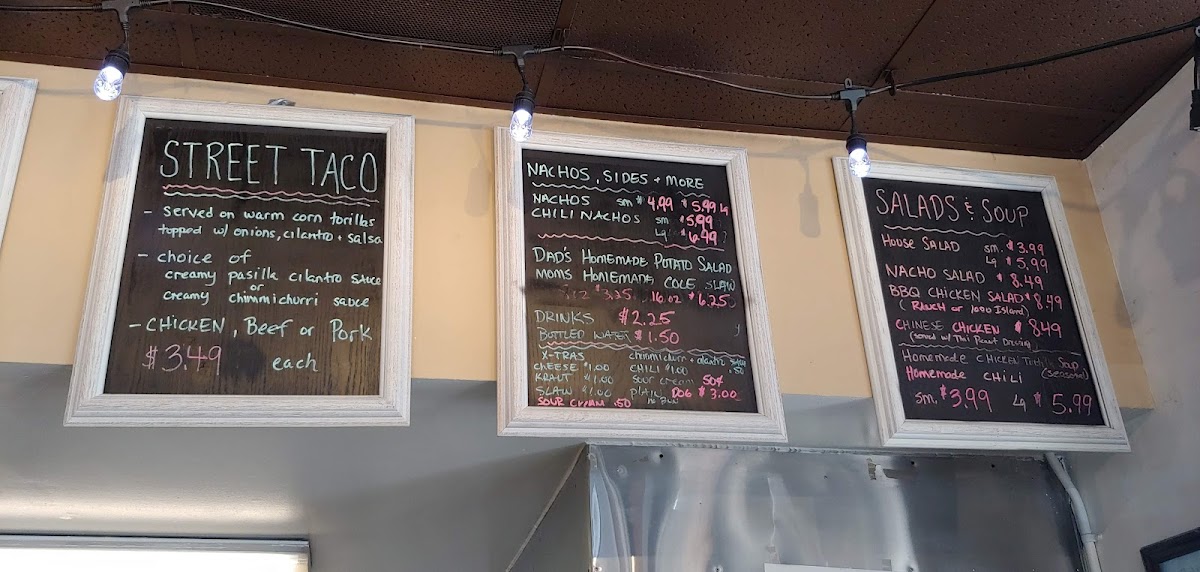 STREET TACO
- Served on warm corn torillas
topped w/ onions, cilantro + salsa
- choice of
creamy pasilla cilantro sauce
or
creamy chimmichurri sauce
- CHICKEN, Beef or Pork
$3.49 each
NACHOS, SIDES + MORE
NACHOS sm $4.99 $5.99 Lg
CHILI NACHOS sm $5.99
Lg $6.99
DAD'S HOMEMADE POTATO SALAD
MOMS HOMEMADE COLE SLAW
$3.25 16.oz $6.25
DRINKS $2.25
BOTTLED WATER $1.50
X-TRAS chimmichurri + cilantro
CHEESE $1.00 CHILI $1.00 .50
KRAUT $1.00 Sour cream 50¢
SLAW $1.00 PLAIN DOG $3.00
SOUR CREAM .50 w/ BUN
SALADS & SOUP
HOUSE SALAD sm. $3.99
Lg $5.99
NACHO SALAD $8.49
BBQ CHICKEN SALAD $8.49
(RANCH or 1000 Island)
CHINESE CHICKEN $8.49
(served w/ Thai Peanut Dressing)
Homemade CHICKEN TORTILLA Soup
(seasonal)
Homemade CHILI
sm. $3.99 Lg $5.99